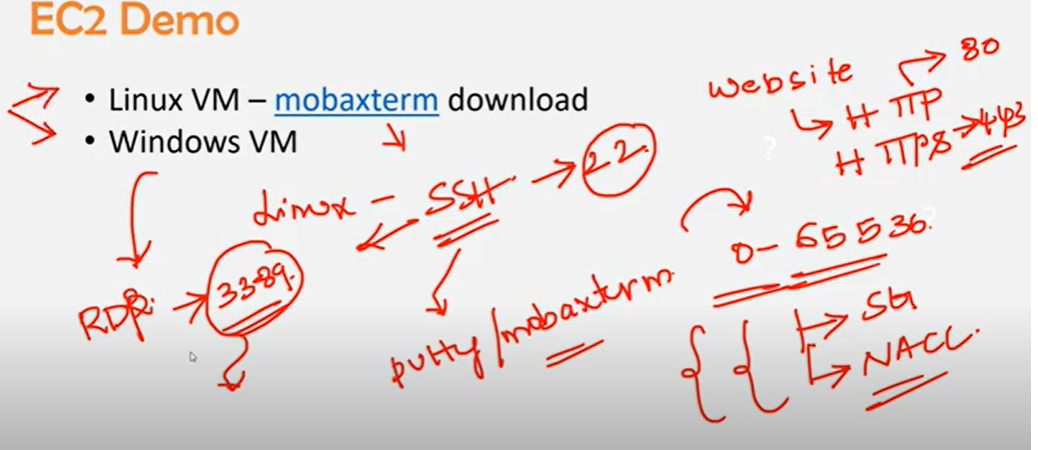 EC2 Demo
• Linux VM – mobaxterm download
• Windows VM
website
HTTP → 80
HTTPS → 443
Linux - SSH → 22
0 - 65536
?
?
RDP → 3389
putty/mobaxterm
SG
NACL